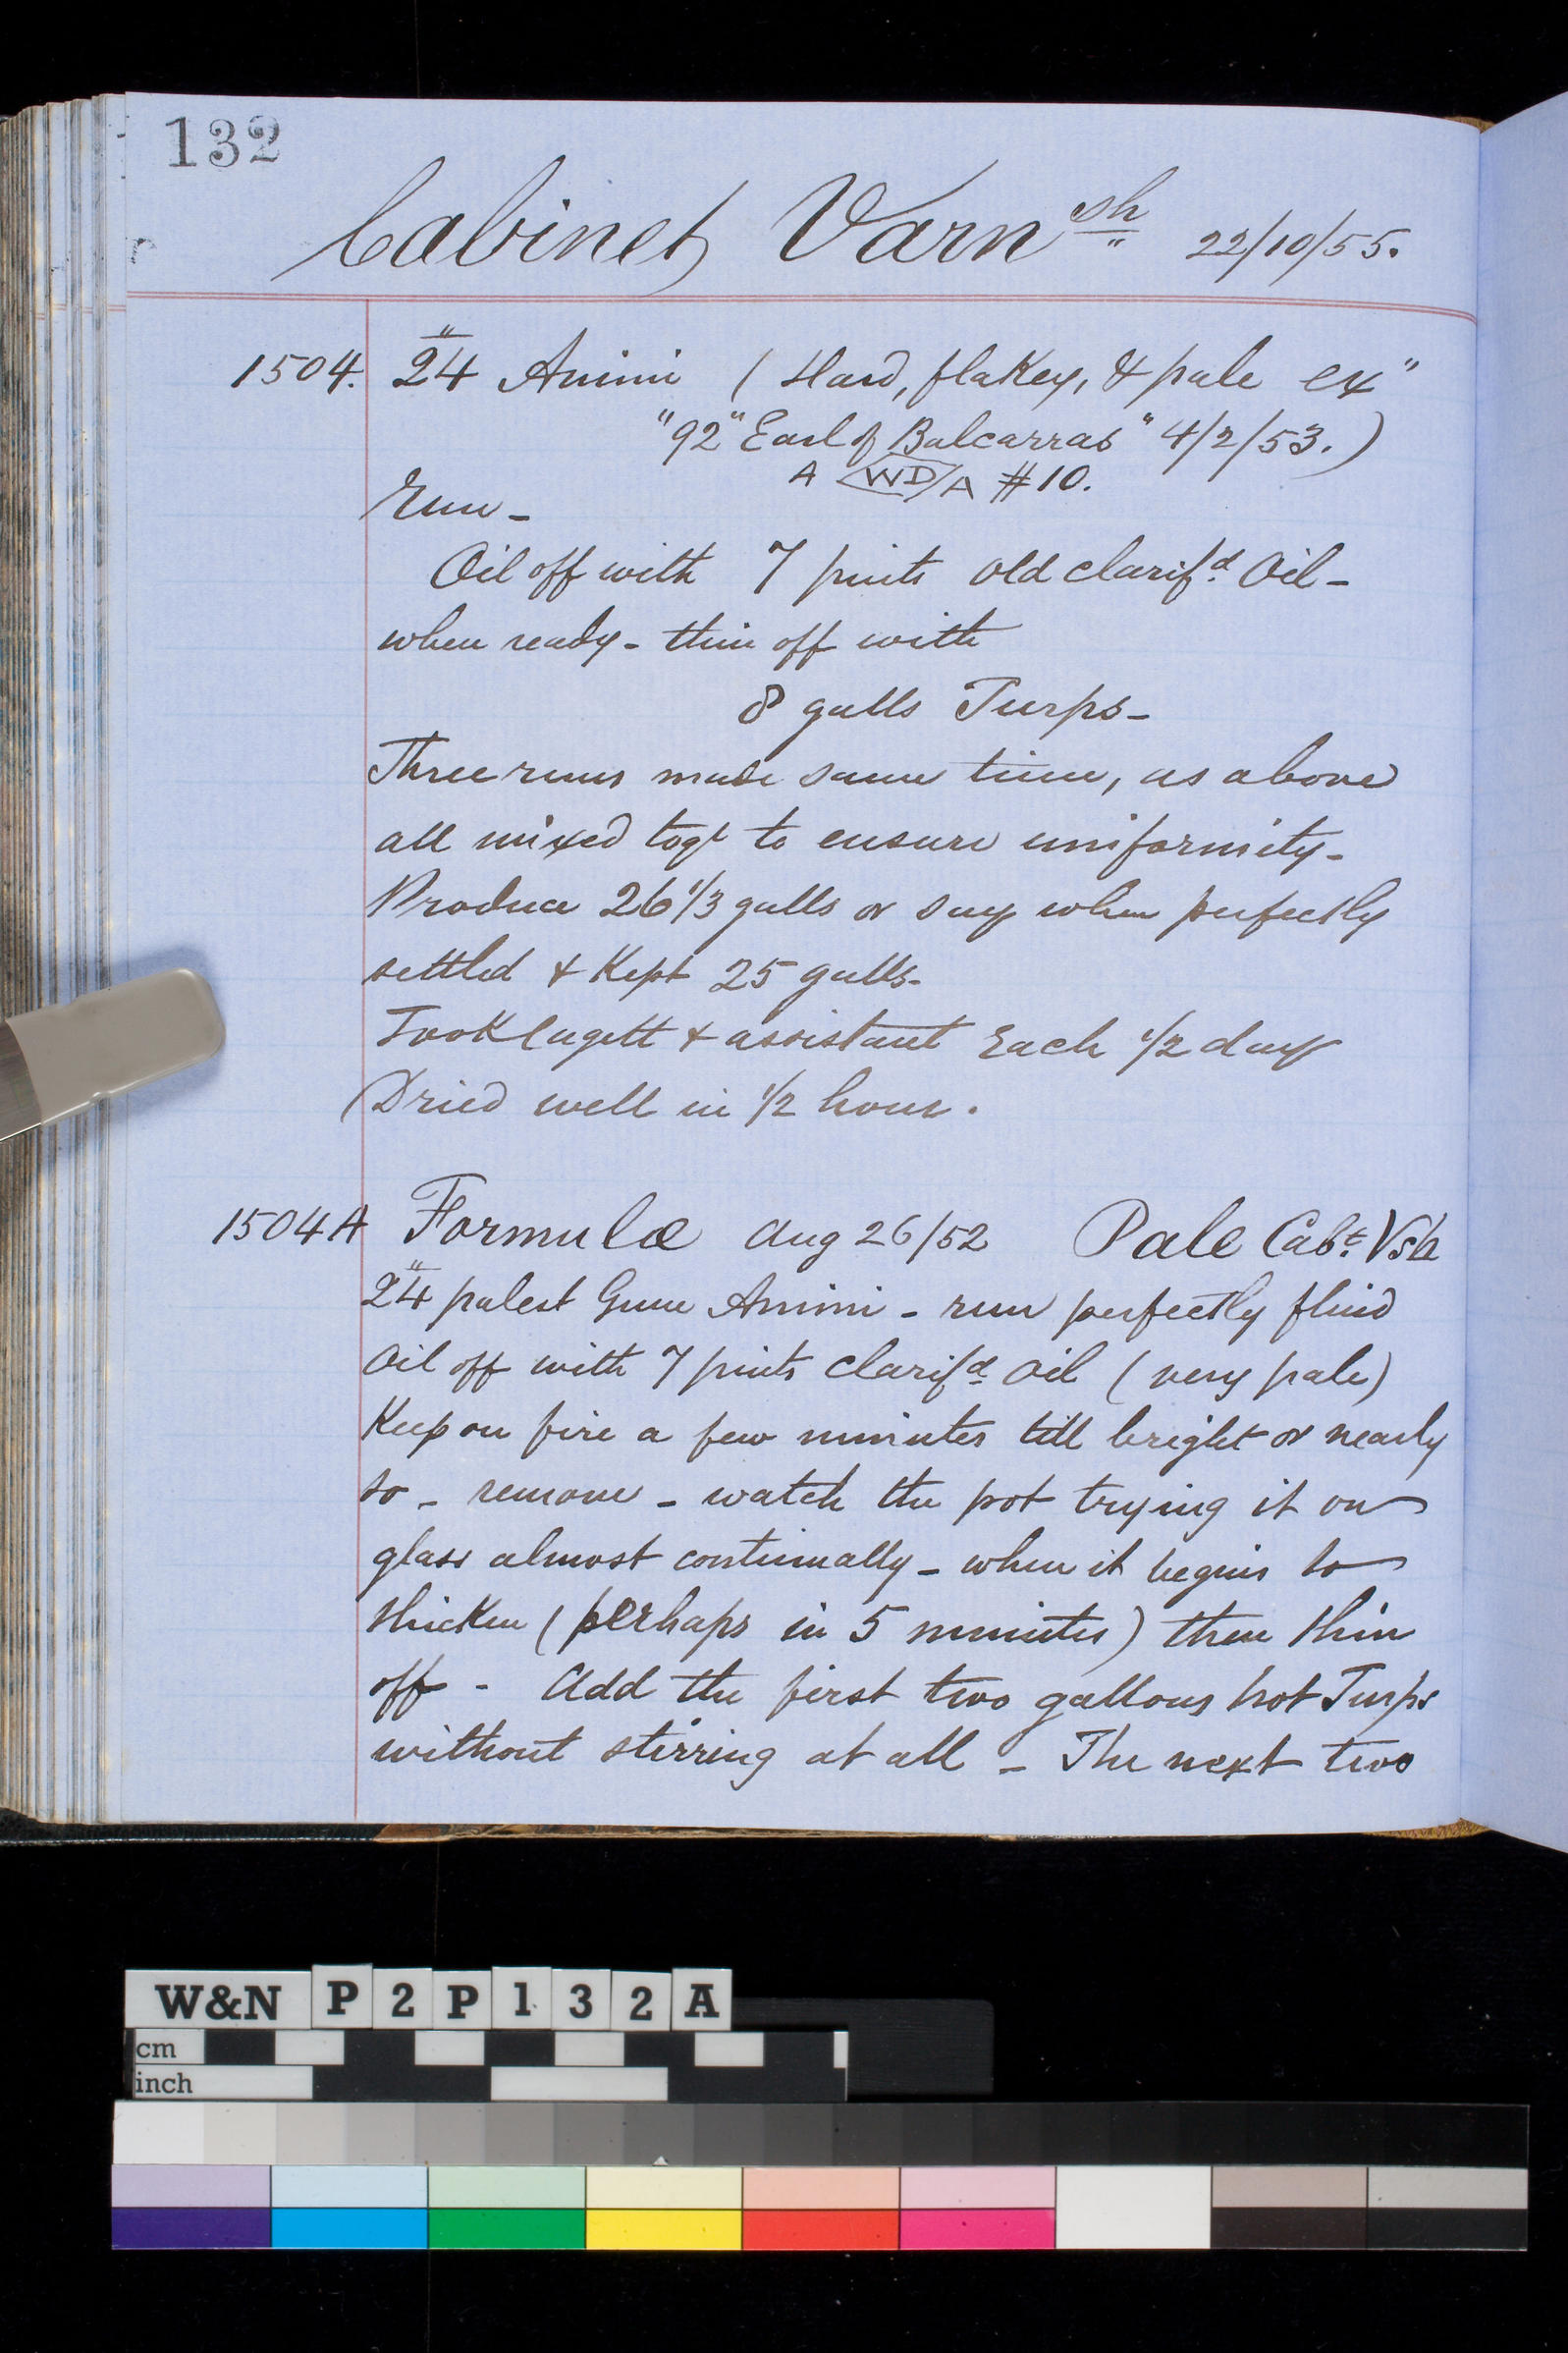 132
Cabinet Varnsh 22/10/55.
1504. 24" Animi (Hard, flakey, & pale ex"
"92" Earl of Balcarras" 4/2/53.)
A WD/A #10.
Run -
Oil off with 7 pints old clarifd. Oil -
when ready - thin off with
8 galls Turps -
Three runs made same time, as above
all mixed togt to ensure uniformity -
Produce 26 1/3 galls or say when perfectly
settled & Kept 25 galls -
Took & assistant Each 1/2 day
Dried well in 1/2 hour.
1504A Formulæ Aug 26/52 Pale Cabt. Vsh
24" palest Gum Animi - run perfectly fluid
Oil off with 7 pints clarifd Oil (very pale)
Keep on fire a few minutes till bright or nearly
so - remove - watch the pot trying it on
glass almost continually - when it begins to
thicken (perhaps in 5 minutes) then thin
off - Add the first two gallons hot Turps
without stirring at all - The next two
W&N P2P132A
cm
inch